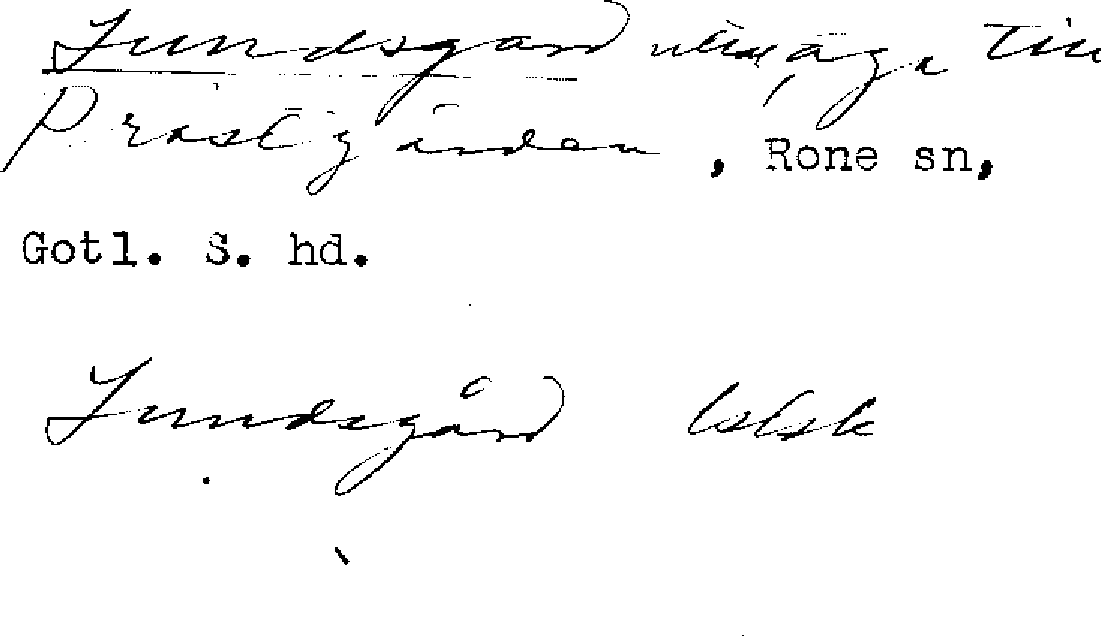 Lundsgård utäga till
Prästgården, Rone sn,
Gotl. S. hd.
Lundsgård